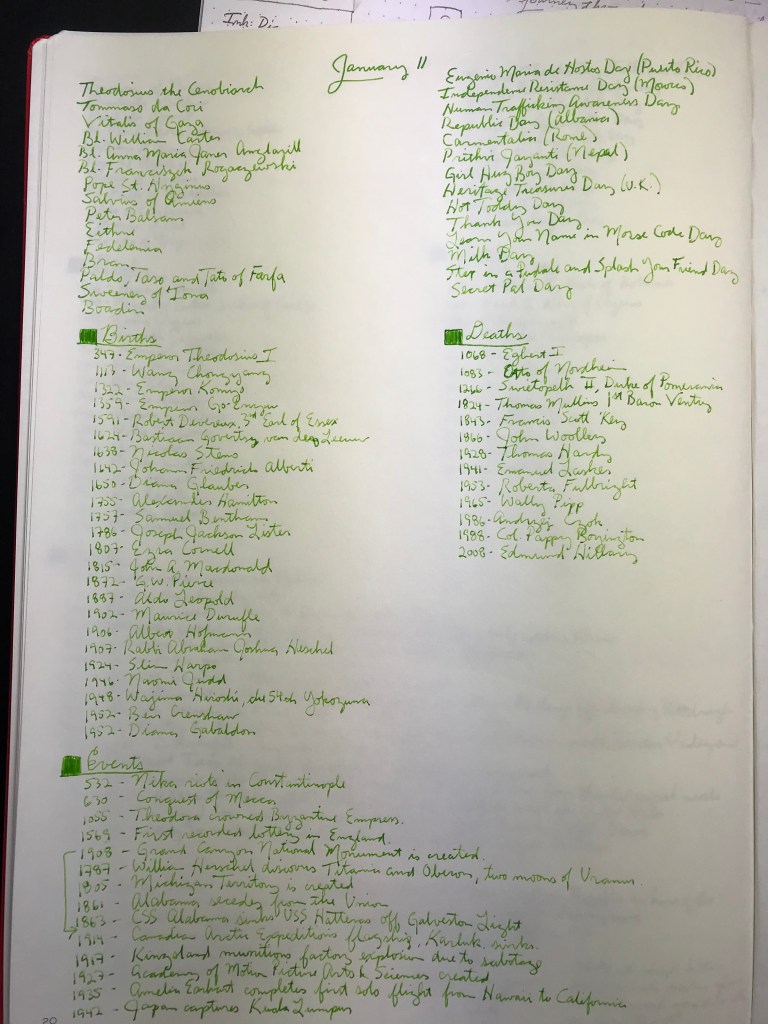 Ink: Di
Journey the
January 11
Theodosius the Cenobiarch
Tommaso da Cori
Vitalis of Gaza
Bl. William Carter
Bl. Anna Maria Janer Anglarill
Bl. Franciszek Rogaczewski
Pope St. Hyginus
Salvius of Amiens
Peter Balsam
Eithne
Fedelemia
Bran
Paldo, Taso and Tato of Farfa
Sweeney of Iona
Boadin
Eugenio Maria de Hostos Day (Puerto Rico)
Independence Resistance Day (Morocco)
Human Trafficking Awareness Day
Republic Day (Albania)
Carmentalia (Rome)
Prithvi Jayanti (Nepal)
Girl Hug Boy Day
Heritage Treasures Day (U.K.)
Hot Toddy Day
Thank You Day
Learn Your Name in Morse Code Day
Milk Day
Step in a Puddle and Splash Your Friend Day
Secret Pal Day
Births
347 - Emperor Theodosius I
1113 - Wang Chongyang
1322 - Emperor Komyo
1359 - Emperor Go-En'yu
1591 - Robert Devereux, 3rd Earl of Essex
1624 - Bastiaan Govertsz van der Leeuw
1638 - Nicolas Steno
1642 - Johann Friedrich Alberti
1650 - Diana Glauber
1755 - Alexander Hamilton
1757 - Samuel Bentham
1786 - Joseph Jackson Lister
1807 - Ezra Cornell
1815 - John A. Macdonald
1872 - G.W. Pierce
1887 - Aldo Leopold
1902 - Maurice Durufle
1906 - Albert Hofmann
1907 - Rabbi Abraham Joshua Heschel
1924 - Slim Harpo
1946 - Naomi Judd
1948 - Wajima Hiroshi, the 54th Yokozuna
1952 - Ben Crenshaw
1952 - Diana Gabaldon
Deaths
1068 - Egbert I
1083 - Otto of Nordheim
1266 - Swietopelk II, Duke of Pomerania
1824 - Thomas Mullins 1st Baron Ventry
1843 - Francis Scott Key
1866 - John Woolley
1928 - Thomas Hardy
1941 - Emanuel Lasker
1953 - Roberta Fulbright
1965 - Wally Pipp
1986 - Andrzej Czok
1988 - Col. Pappy Boyington
2008 - Edmund Hillary
Events
532 - Nika riots in Constantinople
630 - Conquest of Mecca
1055 - Theodora crowned Byzantine Empress.
1569 - First recorded lottery in England.
1908 - Grand Canyon National Monument is created.
1787 - William Herschel discovers Titania and Oberon, two moons of Uranus.
1805 - Michigan Territory is created
1861 - Alabama secedes from the Union
1863 - CSS Alabama sinks USS Hatteras off Galveston Light
1914 - Canadian Arctic Expedition's flagship, Karluk, sinks.
1917 - Kingsland munitions factory explosion due to sabotage
1927 - Academy of Motion Picture Arts & Sciences created
1935 - Amelia Earhart completes first solo flight from Hawaii to California
1942 - Japan captures Kuala Lumpur
20